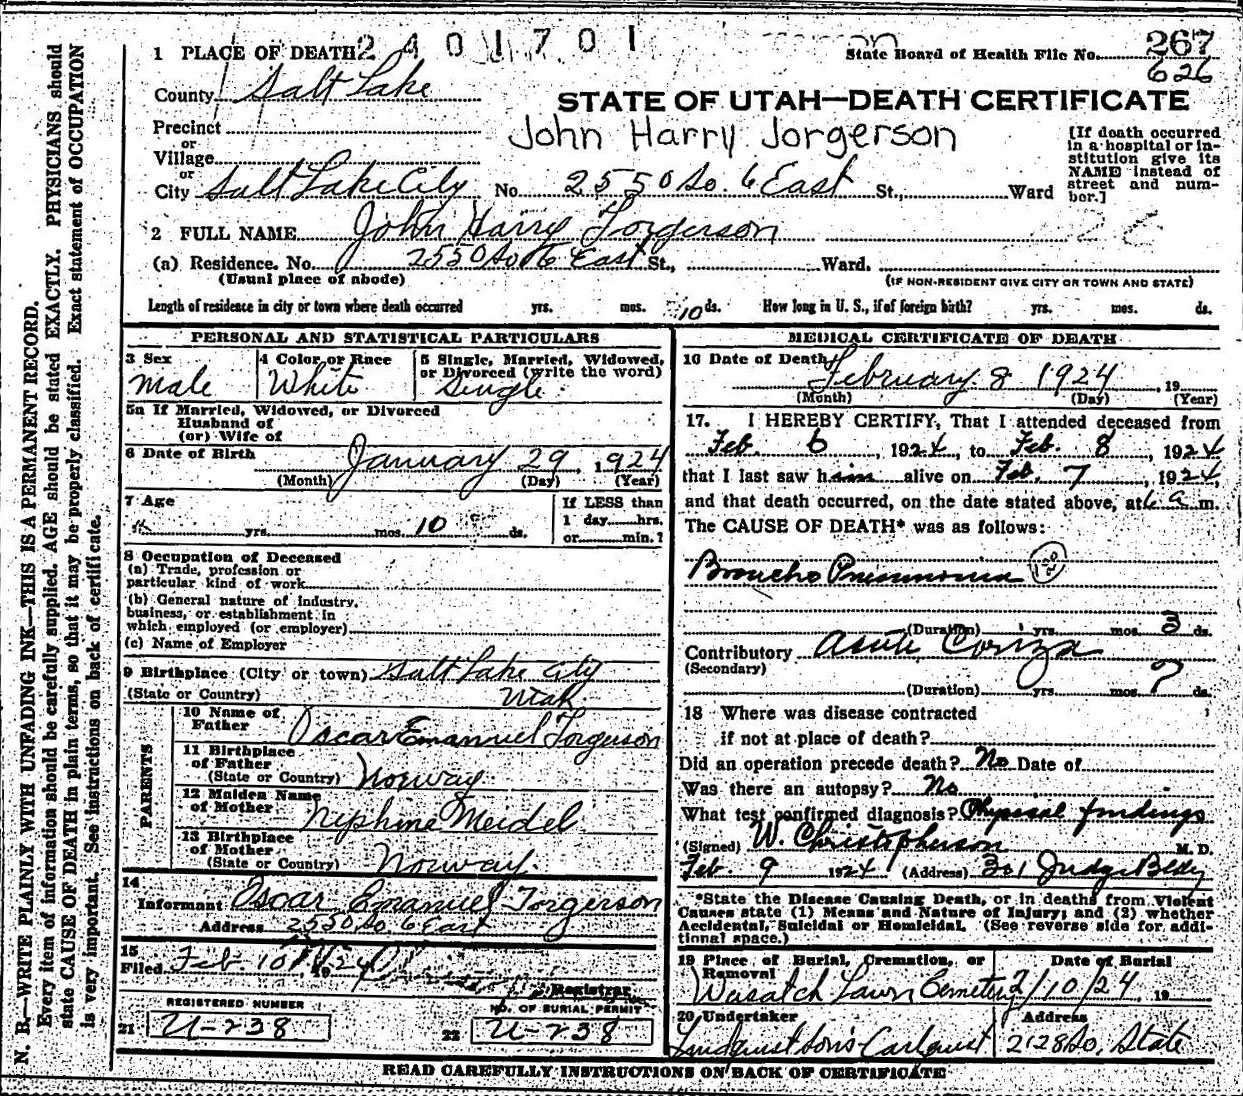 2401701
1 PLACE OF DEATH
State Board of Health File No. 267
626
County Salt Lake
STATE OF UTAH—DEATH CERTIFICATE
Precinct
or
Village
or
John Harry Jorgerson
[If death occurred in a hospital or institution give its NAME instead of street and number.]
City Salt Lake City No. 2550 So. 6 East St., Ward
2 FULL NAME John Harry Torgerson
(a) Residence. No. 2550 So 6 East St., Ward.
(Usual place of abode) (IF NON-RESIDENT GIVE CITY OR TOWN AND STATE)
Length of residence in city or town where death occurred yrs. mos. 10 ds. How long in U. S., if of foreign birth? yrs. mos. ds.
PERSONAL AND STATISTICAL PARTICULARS
3 Sex
Male
4 Color or Race
White
5 Single, Married, Widowed, or Divorced (write the word)
Single
5a If Married, Widowed, or Divorced
Husband of
(or) Wife of
6 Date of Birth January 29, 1924
(Month) (Day) (Year)
7 Age
yrs. mos. 10 ds.
If LESS than
1 day hrs.
or min.?
8 Occupation of Deceased
(a) Trade, profession or
particular kind of work
(b) General nature of industry,
business, or establishment in
which employed (or employer)
(c) Name of Employer
9 Birthplace (City or town) Salt Lake City
(State or Country) Utah
PARENTS
10 Name of
Father Oscar Emanuel Torgerson
11 Birthplace
of Father
(State or Country) Norway
12 Maiden Name
of Mother Niphine Meidel
13 Birthplace
of Mother
(State or Country) Norway.
14
Informant Oscar Emanuel Torgerson
Address 2550 So. 6 East
15
Filed Feb. 10 1924
Registrar
REGISTERED NUMBER
21 U-238
NO. OF BURIAL PERMIT
22 U-238
MEDICAL CERTIFICATE OF DEATH
16 Date of Death
February 8 1924, 19
(Month) (Day) (Year)
17. I HEREBY CERTIFY, That I attended deceased from
Feb. 6, 1924, to Feb. 8, 1924
that I last saw him alive on Feb. 7, 1924,
and that death occurred, on the date stated above, at 6 a m.
The CAUSE OF DEATH* was as follows:
Broncho Pneumonia
(Duration) yrs. mos. 3 ds.
Contributory Acute Coriza
(Secondary)
(Duration) yrs. mos. 7 ds.
18 Where was disease contracted
if not at place of death?
Did an operation precede death? No Date of
Was there an autopsy? No
What test confirmed diagnosis? Physical findings
(Signed) W. Christopherson M. D.
Feb. 9 1924 (Address) 301 Judge Bldg
*State the Disease Causing Death, or in deaths from Violent
Causes state (1) Means and Nature of Injury; and (2) whether
Accidental, Suicidal or Homicidal. (See reverse side for addi-
tional space.)
19 Place of Burial, Cremation, or
Removal
Wasatch Lawn Cemetery
Date of Burial
2/10/24 19
20 Undertaker
Lindquist Sons Carlquist
Address
2128 So. State
READ CAREFULLY INSTRUCTIONS ON BACK OF CERTIFICATE
N. B.—WRITE PLAINLY WITH UNFADING INK—THIS IS A PERMANENT RECORD.
Every item of information should be carefully supplied. AGE should be stated EXACTLY. PHYSICIANS should
state CAUSE OF DEATH in plain terms, so that it may be properly classified. Exact statement of OCCUPATION
is very important. See instructions on back of certificate.